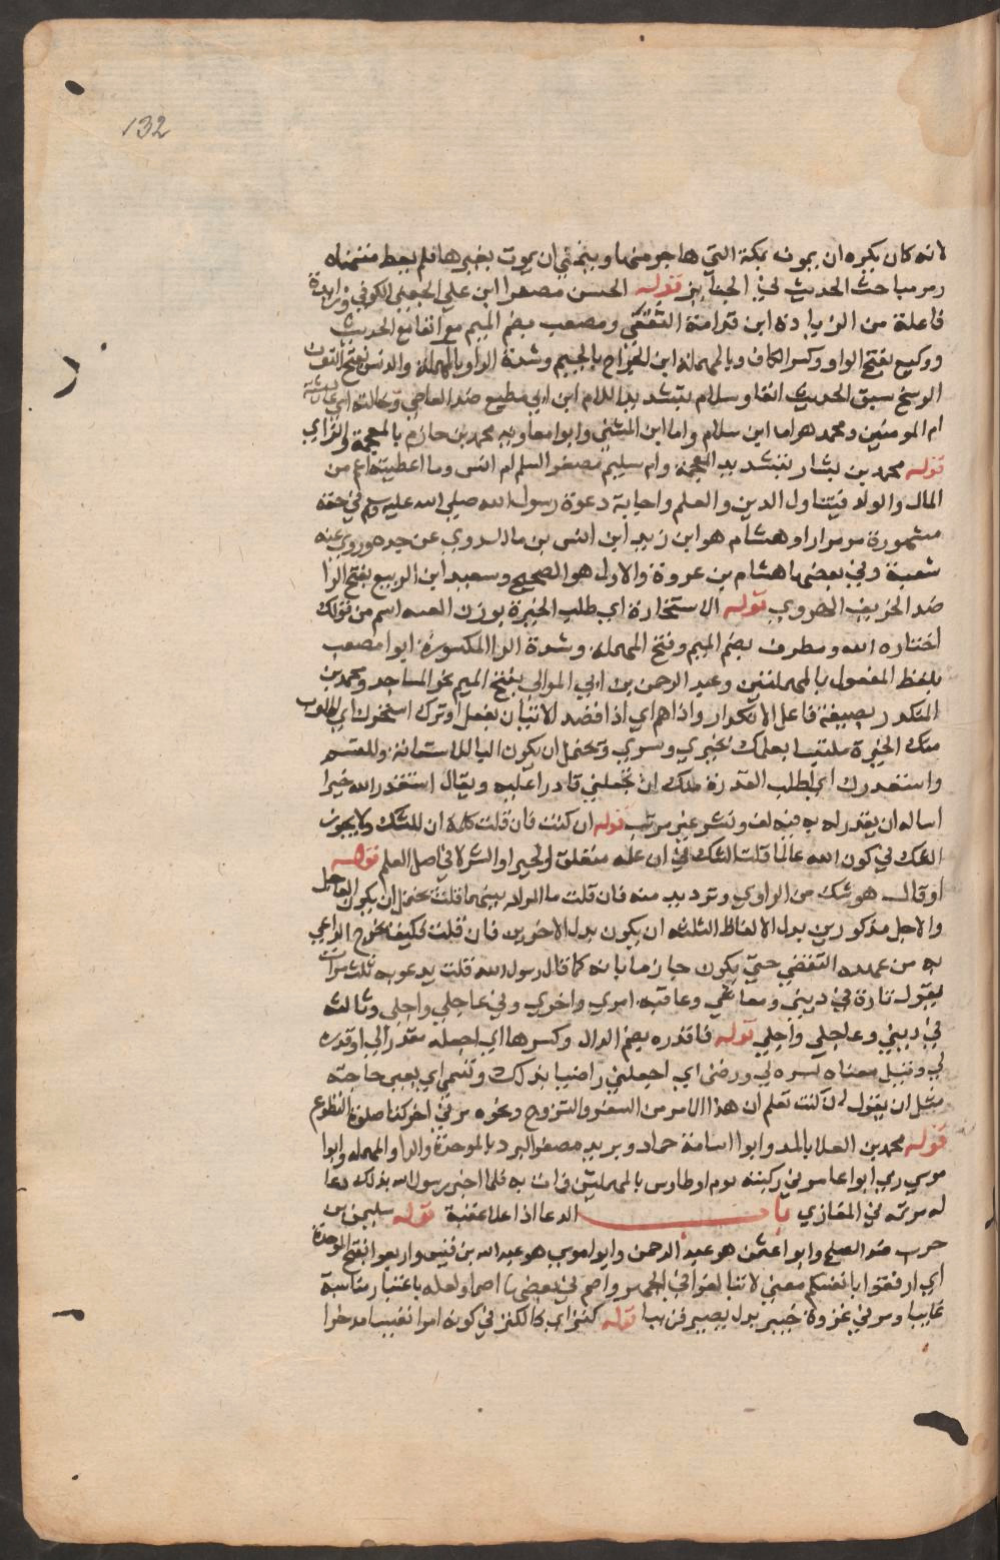 132
لانه كان يكره ان يموت بمكة التي هاجر منها ويتمنى ان يموت بغيرها فلم يعط متمناه
ومر مباحث الحديث في الجنايز قوله الحسن مصغرا ابن علي الجعفي الكوفي وزايدة
فاعلة من الزيادة ابن قدامة الثقفي ومصعب بضم الميم مع انفا مع الحديث
ووكيع بفتح الواو وكسر الكاف وبالمهملة ابن الجراح بالجيم وشدة الراو بالمهملة والدنس بفتح النون
الوسخ سبق الحديث انفا وسلام بتشديد اللام ابن ابي مطيع ضد العاصي وخالته اي عايشة
ام المومنين ومحمد هو اما ابن سلام واما ابن المثني وابوا معاويه محمد بن حازم بالمعجمة والزاي
قوله محمد بن بشار بتشديد المعجمة وام سليم مصغر السلم ام انس وما اعطيته اعم من
المال والولد فيتناول الدين والعلم واجابة دعوة رسول الله صلى الله عليه وسلم في حقه
مشهورة مر مرارا وهشام هو ابن زيد ابن انس بن مالك روي عن جده وروي عنه
شعبة وفي بعضها هشام بن عروة والاول هو الصحيح وسعيد ابن الربيع بفتح الرا
ضد الخريف الهروي قوله الاستخارة اي طلب الخيرة بوزن العنبه اسم من قولك
اختاره الله ومطرف بضم الميم وفتح المهملة وشدة الرا المكسورة ابوا مصعب
بلفظ المفعول بالمهملتين وعبد الرحمن بن ابي الموالي بفتح الميم نحو المساجد ومحمد بن
المنكدر بصيغة فاعل الانكدار واذا هم اي اذا قصد الاتيان بفعل او ترك استخيرك اي اطلب
منك الخيرة ملتبسا بعلمك بخيري وشري ويحتمل ان يكون البا للاستعانة وللقسم
واستقدرك اي اطلب القدرة منك ان تجعلني قادرا عليه ويقال استقدر الله خيرا
اساله ان يقدر له به فيه لف ونشر غير مرتب قوله ان كنت فان قلت كلمة ان للشك ولا يجوز
الشك في كون الله عالما قلت الشك في ان علمه متعلق بالخير او الشر لا في اصل العلم قوله
او قال هو شك من الراوي وترديد منه فان قلت ما المراد بينهما قلت يحتمل ان يكون العاجل
والاجل مذكورين بدل الالفاظ الثلثه ان يكون بدل الاخرين فان قلت فكيف يخرج الداعي
به من عهده التقضي حتى يكون جازما بانه كما قال رسول الله قلت يدعوبه ثلث مرات
يقول تارة في ديني ومعاشي وعاقبة امري واخري وفي عاجلي واجلي وثالثه
في ديني وعاجلي واجلي قوله فاقدره بضم الدال وكسرها اي اجعله مقدرا لي او قدره
لي وقيل معناه يسره لي ورضني اي اجعلني راضيا بذلك وتسمي اي يعين حاجته
مثل ان يقول ان كنت تعلم ان هذا الامر من السفر والتزوج ونحوه مر في اخر كتاب صلوة التطوع
قوله محمد بن العلا بالمد وابوا اسامة حماد وبريد مصغر البرد بالموحدة والرا والمهملة وابوا
موسي رمي ابوا عامر في ركبته يوم اوطاوس بالمهملتين فمات به فلما اخبر رسول الله بذلك دعا
له مر ثمه في المغازي باب الدعا اذا علا عقبة قوله سليمن بن
حرب ضد الصلح وابوا عثمن هو عبد الرحمن وابوا موسي هو عبد الله بن قيس واربعوا بفتح الموحدة
اي ارفقوا بانفسكم معني لا تبالغوا في الجهر واصم في بعضها اصما ولعله باعتبار مناسبة
غايبا ومر في غزوة خيبر بدل بصير قريبا قوله كنز اي كالكنز في كونه امرا نفيسا مدخرا